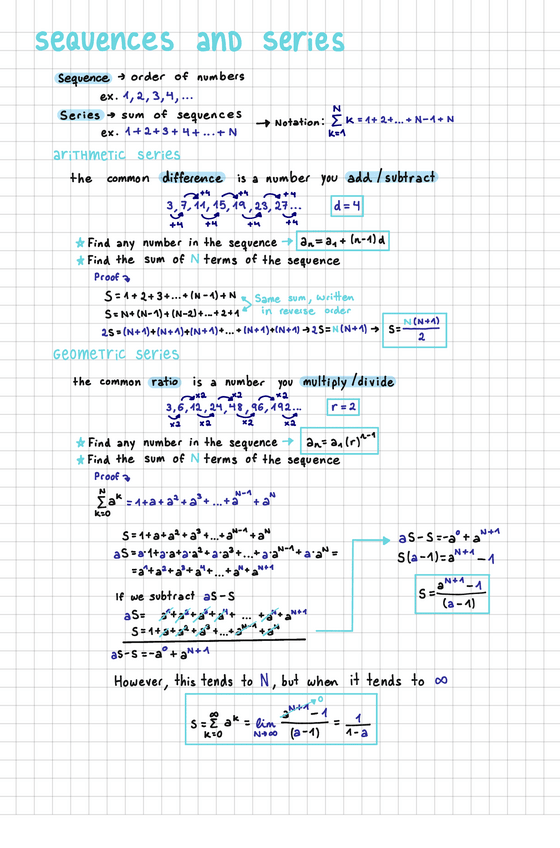 sequences and series
Sequence → order of numbers
ex. 1, 2, 3, 4, ...
Series → sum of sequences
ex. 1+2+3+4+...+N
→ Notation: N Σ k=1 k = 1+2+...+N-1+N
arithmetic series
the common difference is a number you add / subtract
+4 +4 +4
3, 7, 11, 15, 19, 23, 27... d=4
+4 +4 +4 +4
☆ Find any number in the sequence → aₙ = a₁ + (n-1)d
☆ Find the sum of N terms of the sequence
Proof
S = 1+2+3+...+(N-1)+N
S = N+(N-1)+(N-2)+...+2+1
Same sum, written
in reverse order
2S = (N+1)+(N+1)+(N+1)+...+(N+1)+(N+1) → 2S = N(N+1) → S = N(N+1)/2
Geometric series
the common ratio is a number you multiply / divide
x2 x2 x2
3, 6, 12, 24, 48, 96, 192... r=2
x2 x2 x2 x2
☆ Find any number in the sequence → aₙ = a₁(r)ⁿ⁻¹
☆ Find the sum of N terms of the sequence
Proof
N Σ k=0 aᵏ = 1+a+a²+a³+...+aᴺ⁻¹+aᴺ
S = 1+a+a²+a³+...+aᴺ⁻¹+aᴺ
aS = a·1+a·a+a·a²+a·a³+...+a·aᴺ⁻¹+a·aᴺ =
= a¹+a²+a³+a⁴+...+aᴺ+aᴺ⁺¹
If we subtract aS-S
aS = a¹+a²+a³+a⁴+ ... +aᴺ+aᴺ⁺¹
S = 1+a+a²+a³+...+aᴺ⁻¹+aᴺ
aS-S = -a⁰+aᴺ⁺¹
aS-S = -a⁰+aᴺ⁺¹
S(a-1) = aᴺ⁺¹-1
S = aᴺ⁺¹-1/(a-1)
However, this tends to N, but when it tends to ∞
S = ∞ Σ k=0 aᵏ = lim N→∞ aᴺ⁺¹→0 -1/(a-1) = 1/1-a